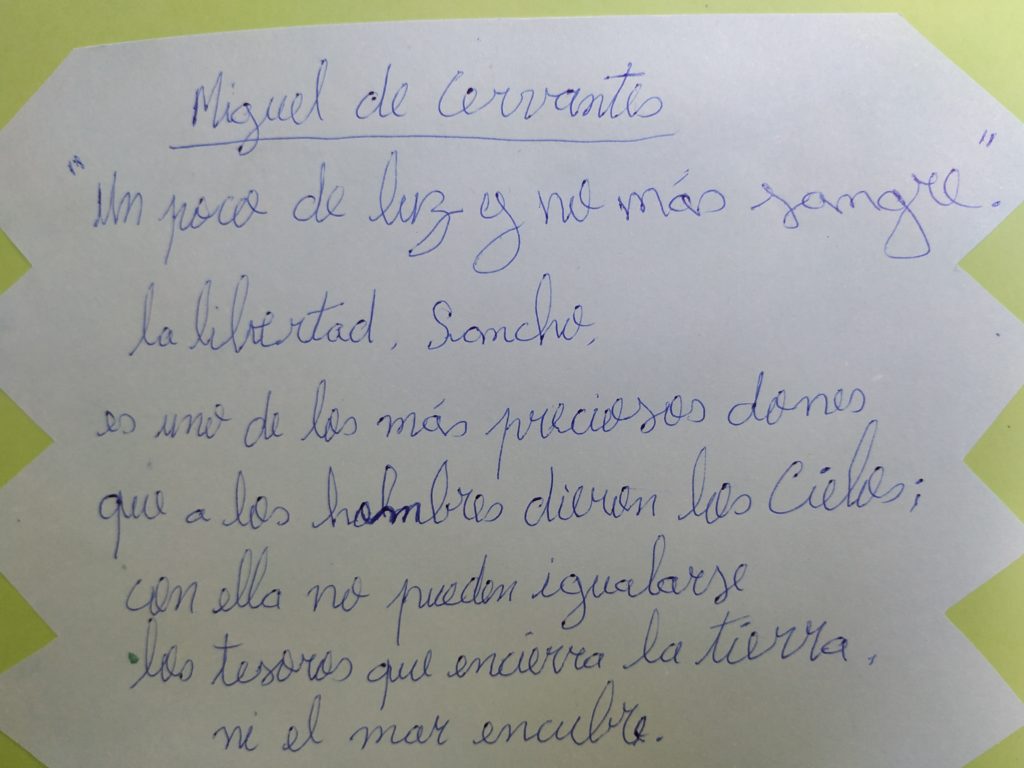 Miguel de Cervantes
"Un poco de luz y no más sangre."
la libertad, Sancho,
es uno de los más preciosos dones
que a los hombres dieron los Cielos;
con ella no pueden igualarse
los tesoros que encierra la tierra,
ni el mar encubre.